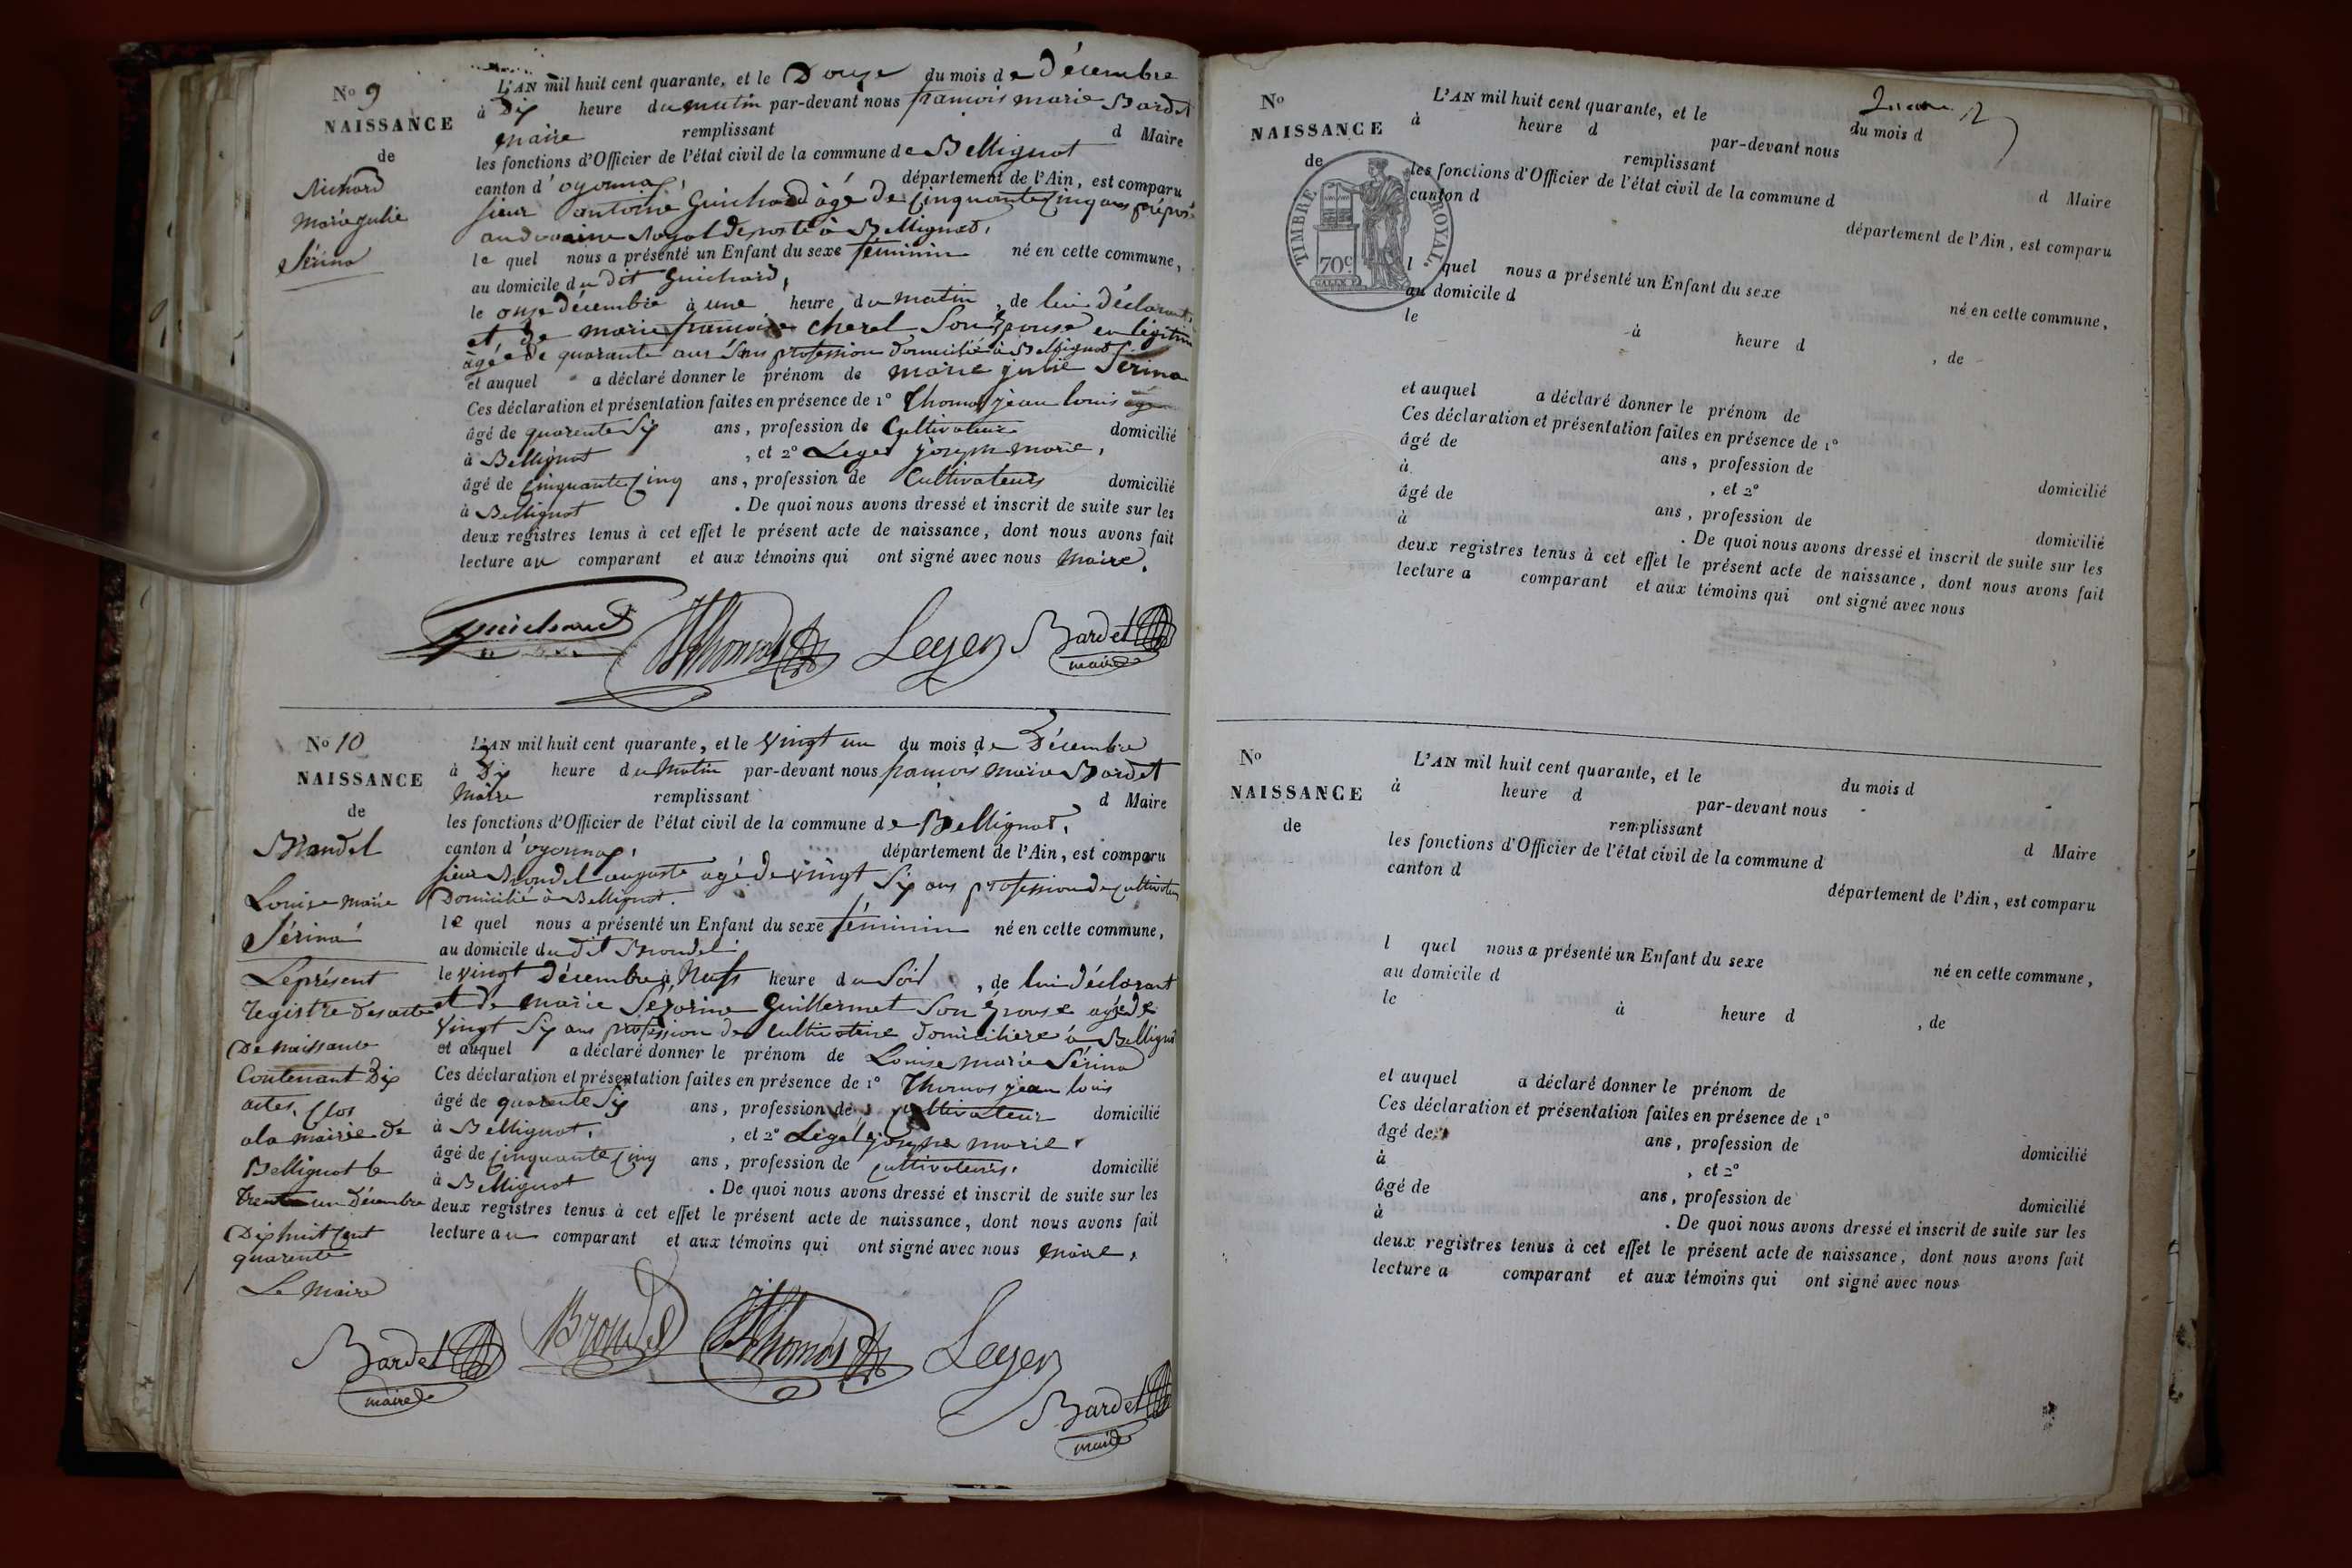 No 9
NAISSANCE
de
Guichard
Marie julie
Sérina
L'AN mil huit cent quarante, et le Douze du mois de Décembre
à Dix heure du matin par-devant nous françois marie Bardet
maire remplissant d Maire
les fonctions d'Officier de l'état civil de la commune de Bellignat
canton d'oyonnax, département de l'Ain, est comparu
sieur antoine Guichard âgé de Cinquante Cinq ans préposé
au domaine Royal de poste à Bellignat,
le quel nous a présenté un Enfant du sexe féminin né en cette commune,
au domicile du dit Guichard,
le onze décembre à une heure du matin, de lui Déclarant,
et de marie françoise cheval Son Epouse en légitime
âgée de quarante ans Sans profession domicilié à Bellignat
et auquel a déclaré donner le prénom de marie julie Sérina
Ces déclaration et présentation faites en présence de 1° Thomas jean louis
âgé de quarente Six ans, profession de Cultivateur domicilié
à Bellignat, et 2° Leger joseph marie,
âgé de Cinquante Cinq ans, profession de Cultivateurs domicilié
à Bellignat. De quoi nous avons dressé et inscrit de suite sur les
deux registres tenus à cet effet le présent acte de naissance, dont nous avons fait
lecture au comparant et aux témoins qui ont signé avec nous Maire.
Guichard Thomas Leger Bardet
maire
No 10
NAISSANCE
de
Brondel
Louise marie
Sérina
Le présent
registre des actes
De naissance
Contenant Dix
actes, Clos
a la mairie de
Bellignat le
trente un Décembre
Dix huit Cent
quarente
Le Maire
L'AN mil huit cent quarante, et le vingt un du mois de Décembre
à Dix heure du Matin par-devant nous françois Marie Bardet
Maire remplissant d Maire
les fonctions d'Officier de l'état civil de la commune de Bellignat,
canton d'oyonnax, département de l'Ain, est comparu
sieur Brondel auguste agé de vingt Six ans profession de cultivateur
Domicilié à Bellignat.
le quel nous a présenté un Enfant du sexe féminin né en cette commune,
au domicile du dit Brondel
le vingt décembre à Neuf heure du Soir, de lui déclarant
et de marie Séforine Guillermet Son épouse agé de
vingt Six ans profession de cultivatrice domicilière à Bellignat
et auquel a déclaré donner le prénom de Louise Marie Sérina
Ces déclaration et présentation faites en présence de 1° Thomas jean louis
âgé de quarente Six ans, profession de cultivateur domicilié
à Bellignat, et 2° Léger joseph marie,
âgé de Cinquante Cinq ans, profession de cultivateurs, domicilié
à Bellignat. De quoi nous avons dressé et inscrit de suite sur les
deux registres tenus à cet effet le présent acte de naissance, dont nous avons fait
lecture au comparant et aux témoins qui ont signé avec nous Maire,
Bardet Brondel Thomas Leger
maire
Bardet
maire
No
NAISSANCE
de
TIMBRE ROYAL
70c
L'AN mil huit cent quarante, et le du mois d
à heure d par-devant nous
remplissant d Maire
les fonctions d'Officier de l'état civil de la commune d
canton d département de l'Ain, est comparu
l quel nous a présenté un Enfant du sexe né en cette commune,
au domicile d
le à heure d , de
et auquel a déclaré donner le prénom de
Ces déclaration et présentation faites en présence de 1°
âgé de ans, profession de domicilié
à , et 2°
âgé de ans, profession de domicilié
à . De quoi nous avons dressé et inscrit de suite sur les
deux registres tenus à cet effet le présent acte de naissance, dont nous avons fait
lecture a comparant et aux témoins qui ont signé avec nous
No
NAISSANCE
de
L'AN mil huit cent quarante, et le du mois d
à heure d par-devant nous
remplissant d Maire
les fonctions d'Officier de l'état civil de la commune d
canton d département de l'Ain, est comparu
l quel nous a présenté un Enfant du sexe né en cette commune,
au domicile d
le à heure d , de
et auquel a déclaré donner le prénom de
Ces déclaration et présentation faites en présence de 1°
âgé de ans, profession de domicilié
à , et 2°
âgé de ans, profession de domicilié
à . De quoi nous avons dressé et inscrit de suite sur les
deux registres tenus à cet effet le présent acte de naissance, dont nous avons fait
lecture a comparant et aux témoins qui ont signé avec nous